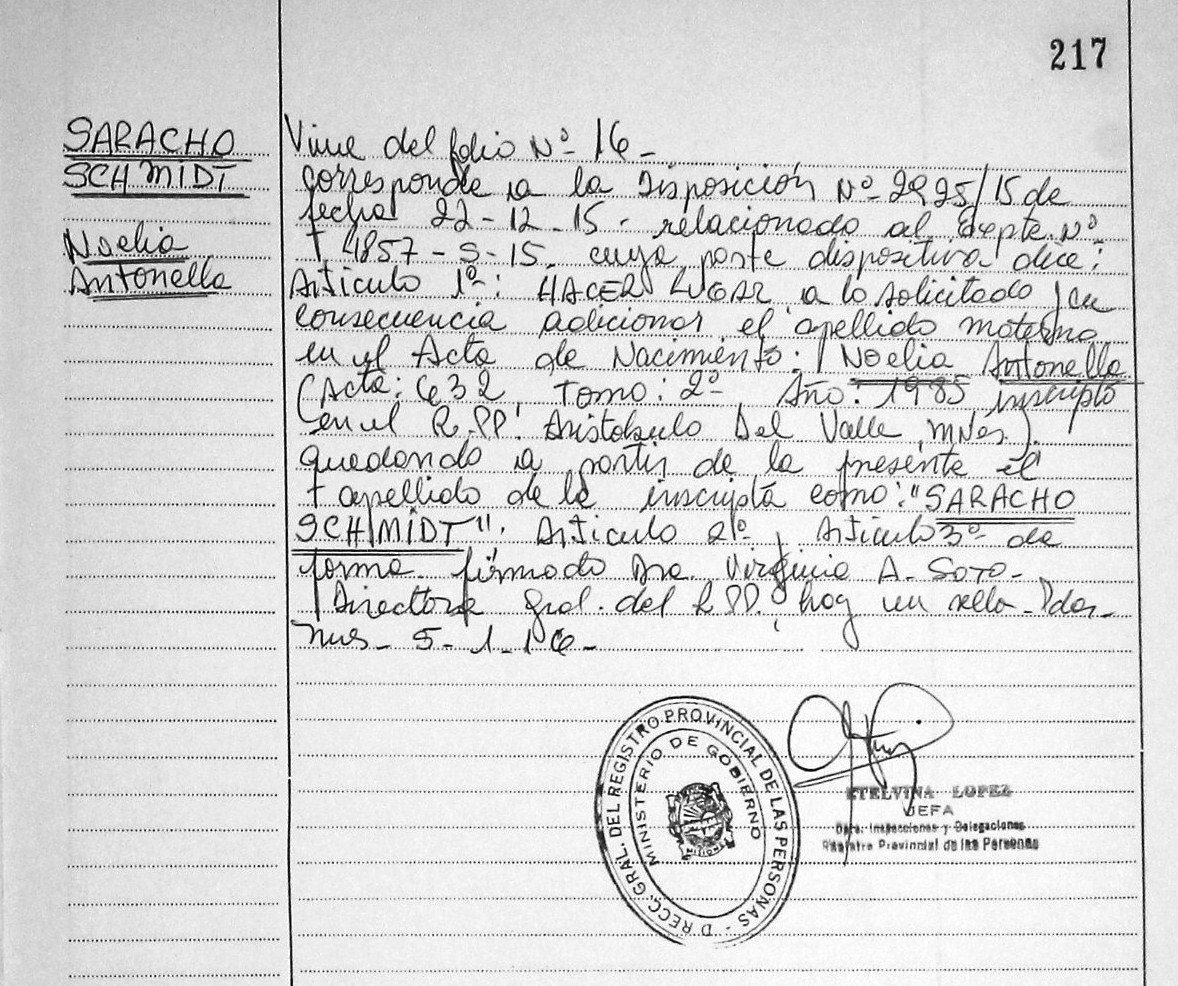 217
SARACHO
SCHMIDT
Noelia
Antonella
Viene del folio Nº 16 -
corresponde a la Disposición Nº 2925/15 de
fecha 22-12-15. relacionado al Expte. Nº
4857-S-15. cuya parte dispositiva dice:
Articulo 1º: HACER LUGAR a lo solicitado, en
consecuencia adicionar el apellido materno
en el Acta de Nacimiento: Noelia Antonella
(Acta: 632 Tomo: 2º Año: 1985 inscripto
en el R.PP. Aristobulo Del Valle, Mnes.).
quedando a partir de la presente el
apellido de la inscripta como: "SARACHO
SCHMIDT". Articulo 2º, Articulo 3º de
forma. firmado Dra. Virginia A. Soto-
Directora Gral. del R.PP. hay un sello. Pdas.
Mnes- 5-1-16-
DRECC. GRAL. DEL REGISTRO PROVINCIAL DE LAS PERSONAS -
MINISTERIO DE GOBIERNO
MISIONES
ETELVINA LOPEZ
JEFA
Inspecciones y Delegaciones
Registro Provincial de las Personas